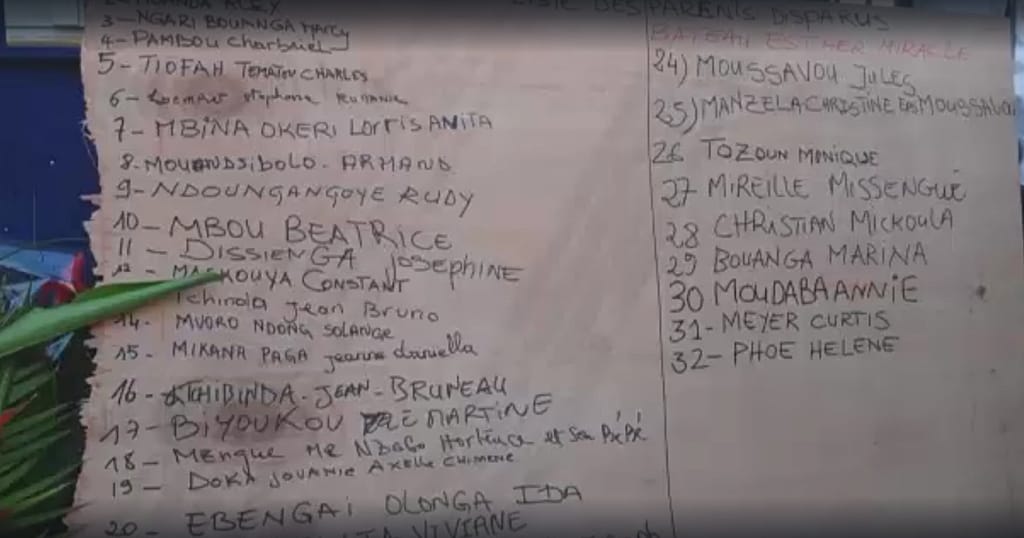 LISTE DES PARENTS DISPARUS
BATEAU ESTHER MIRACLE
3- NGARI BOUANGA MARCY
4- PAMBOU Charbriel
5- TIOFAH TEMATOU CHARLES
6- stephane
7- MBINA OKERI LORRIS ANITA
8- MOUANDSIBOLO. ARMAND
9- NDOUNGANGOYE RUDY
10- MBOU BEATRICE
11- DISSIENGA JOSEPHINE
12- CONSTANT
Tchinola Jean Bruno
14- MVORO NDONG SOLANGE
15- MIKANA PAGA jeanne danuella
16- TCHIBINDA. JEAN-BRUNEAU
17- BIYOUKOU MARTINE
18- Mengue Me NDONG Hortence et Son Bé Bé
19- DOKA JOVANIE AXELLE CHIMENE
20- EBENGAI OLONGA IDA
VIVIANE
24) MOUSSAVOU JULES
25) MANZELA CHRISTINE EPS MOUSSAVOU
26 TOZOUN MONIQUE
27 MIREILLE MISSENGUE
28 CHRISTIAN MICKOULA
29 BOUANGA MARINA
30 MOUDABA ANNIE
31- MEYER CURTIS
32- PHOE HELENE